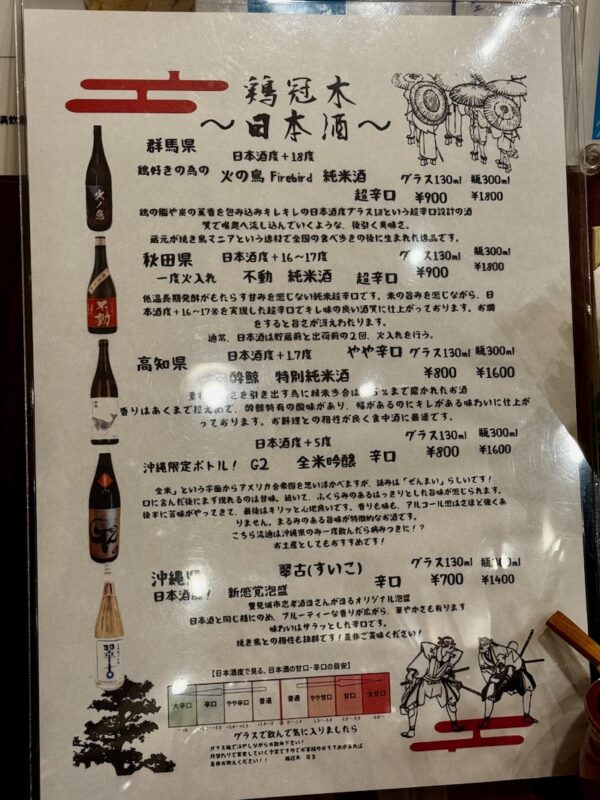 鶏冠木
〜日本酒〜
群馬県
日本酒度+18度
鶏好きの為の 火の鳥 Firebird 純米酒
超辛口
グラス130ml 瓶300ml
¥900 ¥1800
鶏の脂や炭の薫香を包み込みキレキレの日本酒度プラス18という超辛口設計の酒
質で喉奥へ流し込んでいくような、後引く美味さ。
蔵元が焼き鳥マニアという逸材で全国の食べ歩きの後に生まれた逸品です。
秋田県 日本酒度+16〜17度
一度火入れ 不動 純米酒 超辛口
グラス130ml 瓶300ml
¥900 ¥1800
低温長期発酵がもたらす甘みを感じない純米超辛口です。米の旨みを感じながら、日
本酒度+16〜17※を実現した超辛口でキレ味の良い酒質に仕上がっております。お燗
をすると旨さが冴えわたります。
通常、日本酒は貯蔵前と出荷前の2回、火入れを行う。
高知県 日本酒度+1.7度 やや辛口
酔鯨 特別純米酒
グラス130ml 瓶300ml
¥800 ¥1600
を引き出す為に精米歩合は %まで磨かれたお酒
香りはあくまで控えめで、酔鯨特有の酸味があり、幅があるのにキレがある味わいに仕上が
っております。お料理との相性が良く食中酒に最適です。
日本酒度+5度
沖縄限定ボトル! G2 全米吟醸 辛口
グラス130ml 瓶300ml
¥800 ¥1600
全米」という字面からアメリカ合衆国を思い浮かべますが、読みは「ぜんまい」らしいです!
口に含んだ後にまず現れるのは甘味。続いて、ふくらみのあるはっきりとした旨味が感じられます。
後半に苦味がやってきて、最後はキリッと心地良いです。香りも味も、アルコール感はさほど強くあ
りません。まるみのある旨味が特徴的なお酒です。
こちら流通は沖縄県のみ一度飲んだら病みつきに!?
お土産としてもおすすめです!
沖縄県 翠古(すいこ)
日本酒 新感覚泡盛 辛口
グラス130ml 瓶300ml
¥700 ¥1400
豊見城市忠孝酒造さんが造るオリジナル泡盛
日本酒と同じ様にのめ、フルーティーな香りが広がり、華やかさも有ります
味わいはサラッとした辛口です。
焼き鳥との相性も抜群です!是非ご賞味ください!
【日本酒度で見る、日本酒の甘口・辛口の目安】
大辛口 辛口 やや辛口 普通 普通 やや甘口 甘口 大甘口
グラスで飲んで気に入りましたら
グラス瓶で冷やしながらお飲み下さい!
鶏冠木 店主
火の鳥
不動
G2